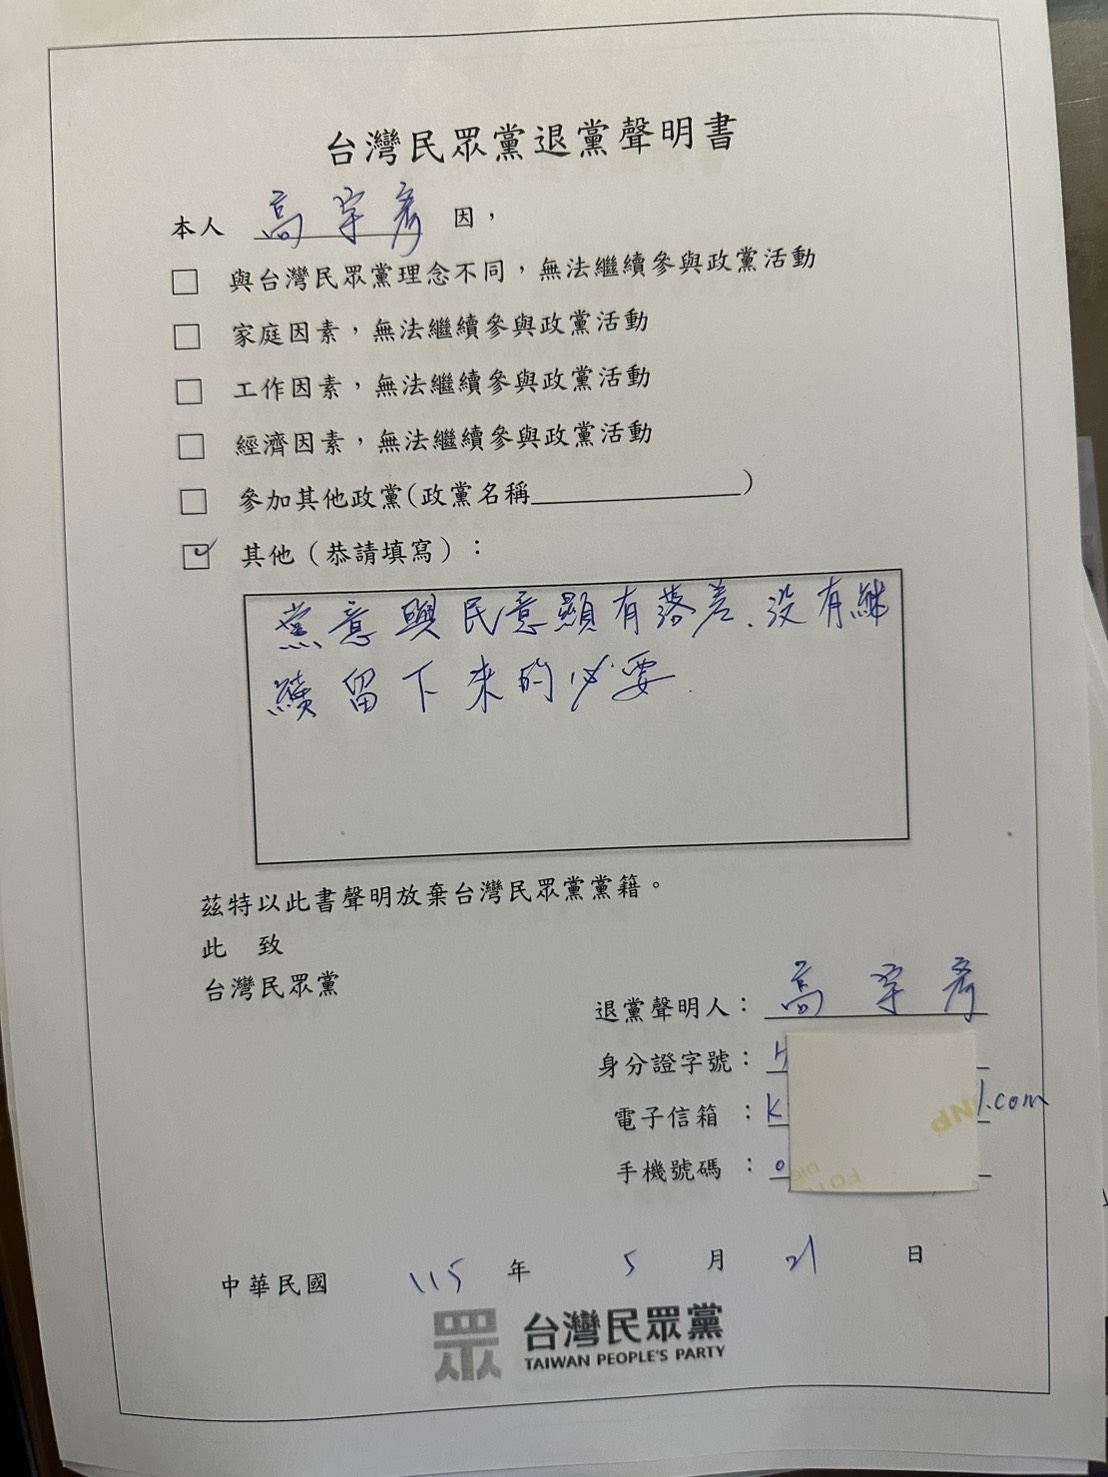 台灣民眾黨退黨聲明書
本人 高宇彥 因，
□ 與台灣民眾黨理念不同，無法繼續參與政黨活動
□ 家庭因素，無法繼續參與政黨活動
□ 工作因素，無法繼續參與政黨活動
□ 經濟因素，無法繼續參與政黨活動
□ 參加其他政黨(政黨名稱_______________)
☑ 其他（恭請填寫）：
黨意與民意顯有落差.沒有繼
續留下來的必要.
茲特以此書聲明放棄台灣民眾黨黨籍。
此 致
台灣民眾黨
退黨聲明人：高宇彥
身分證字號：
電子信箱：k l.com
手機號碼：0
中華民國 115 年 5 月 21 日
眾 台灣民眾黨
TAIWAN PEOPLE'S PARTY